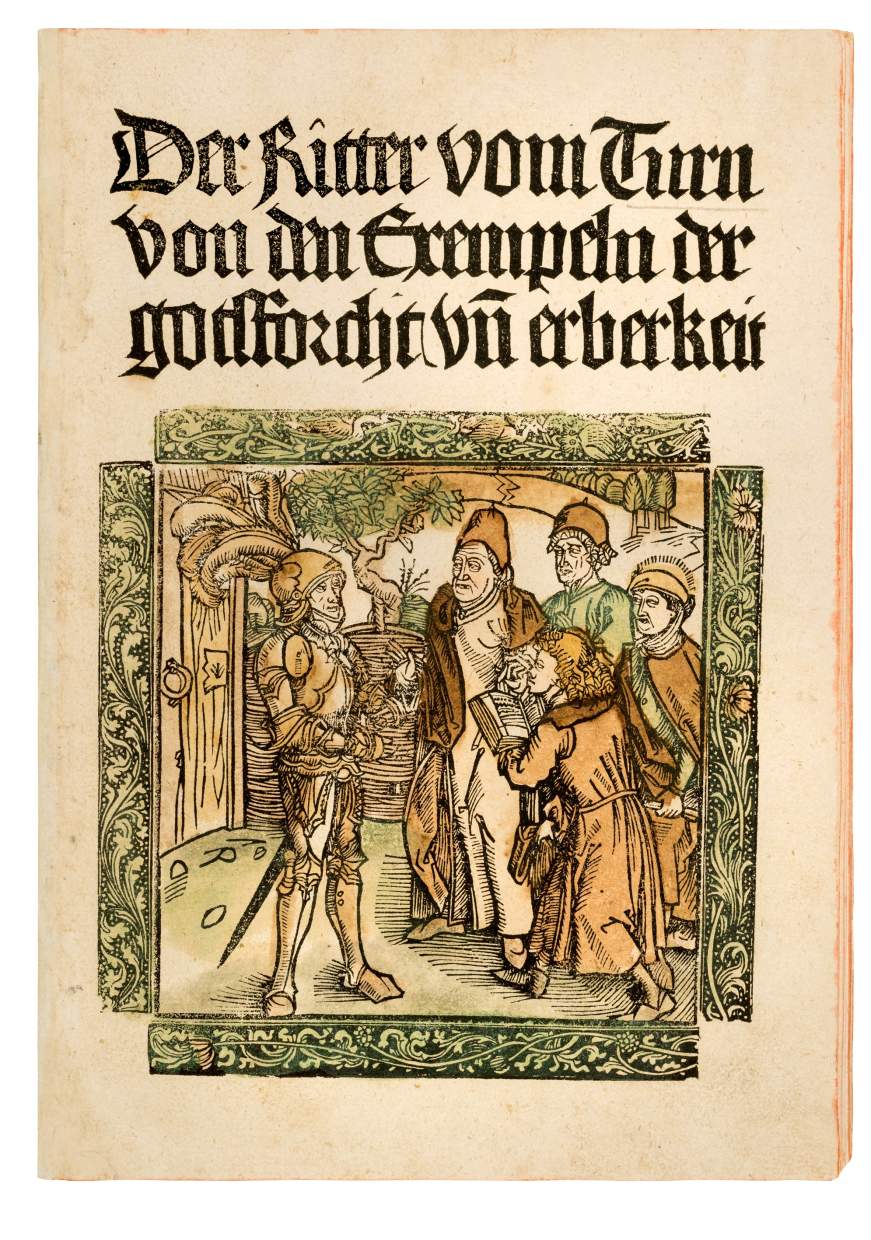 Der Ritter vom Turn
von den Exempeln der
gotsforcht vn̄ erberkeit